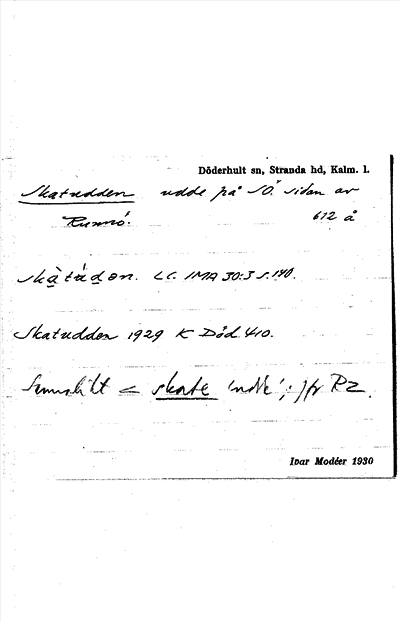 Döderhult sn, Stranda hd, Kalm. l.
Skatudden udde på SÖ. sidan av
Runnö. 612 å
skà̱túdən. LC. IMA 30:3 s. 140.
Skatudden 1929 K Död. 410.
Sannolikt < skate 'udde'; jfr Rz.
Ivar Modéer 1930